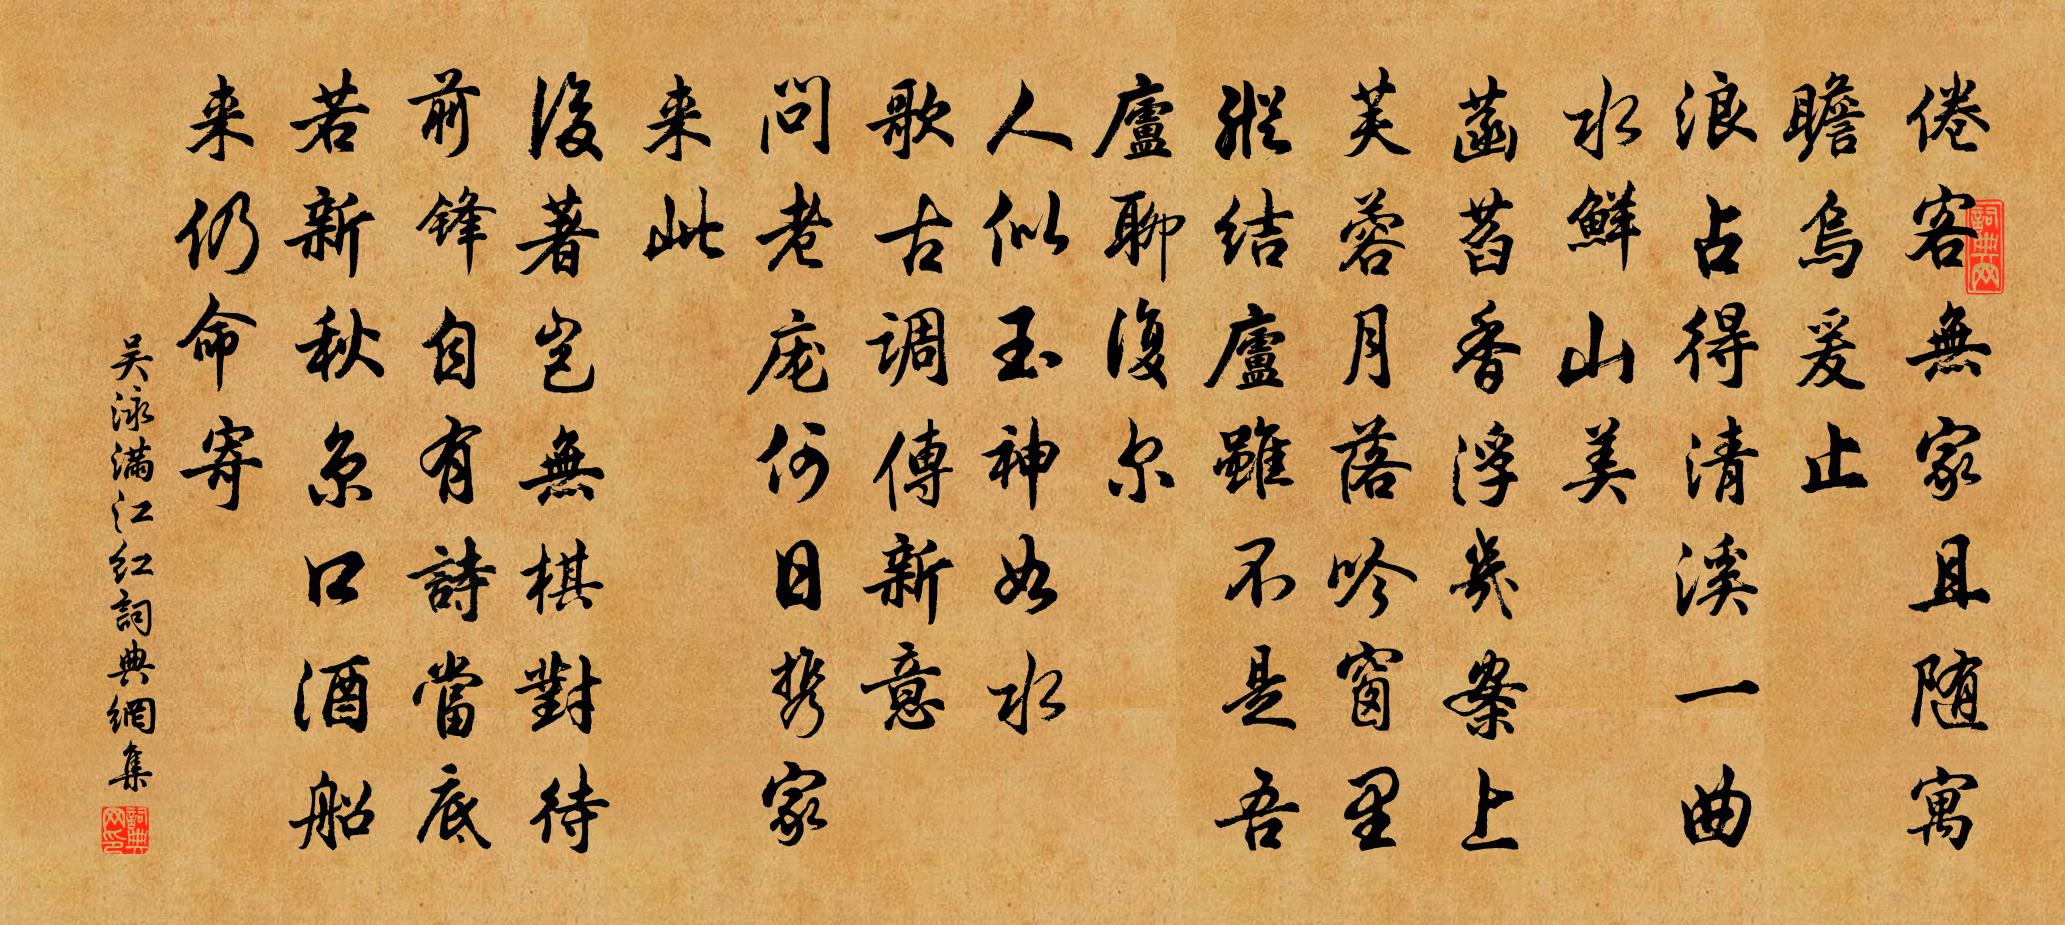 倦客無家且随寓
瞻烏爰止
浪占得清溪一曲
水鮮山美
菡萏香浮幾案上
芙蓉月落吟窗里
縱結廬雖不是吾
廬聊復尔
人似玉神如水
歌古调傳新意
问老庞何日携家
来此
後著豈無棋對待
前鋒自有詩當底
若新秋京口酒船
来仍命寄
吴泳满江红詞典網集
詞典网
詞典网印